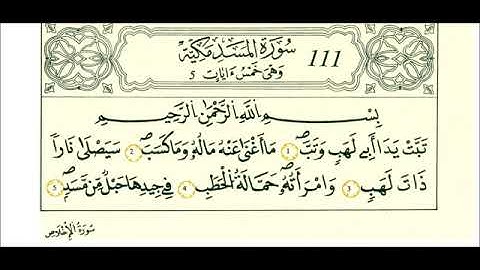 سُورَةُ المَسَدِ مَكِيَّة 111
وَهِيَ خَمْسُ ءَايَاتٍ 5
بِسْمِ اللَّهِ الرَّحْمَٰنِ الرَّحِيمِ
تَبَّتْ يَدَا أَبِي لَهَبٍ وَتَبَّ 1 مَا أَغْنَىٰ عَنْهُ مَالُهُ وَمَا كَسَبَ 2 سَيَصْلَىٰ نَاراً
ذَاتَ لَهَبٍ 3 وَامْرَأَتُهُ حَمَّالَةُ الْحَطَبِ 4 فِي جِيدِهَا حَبْلٌ مِّن مَّسَدٍ 5
سُورَةُ الإِخْلَاصِ